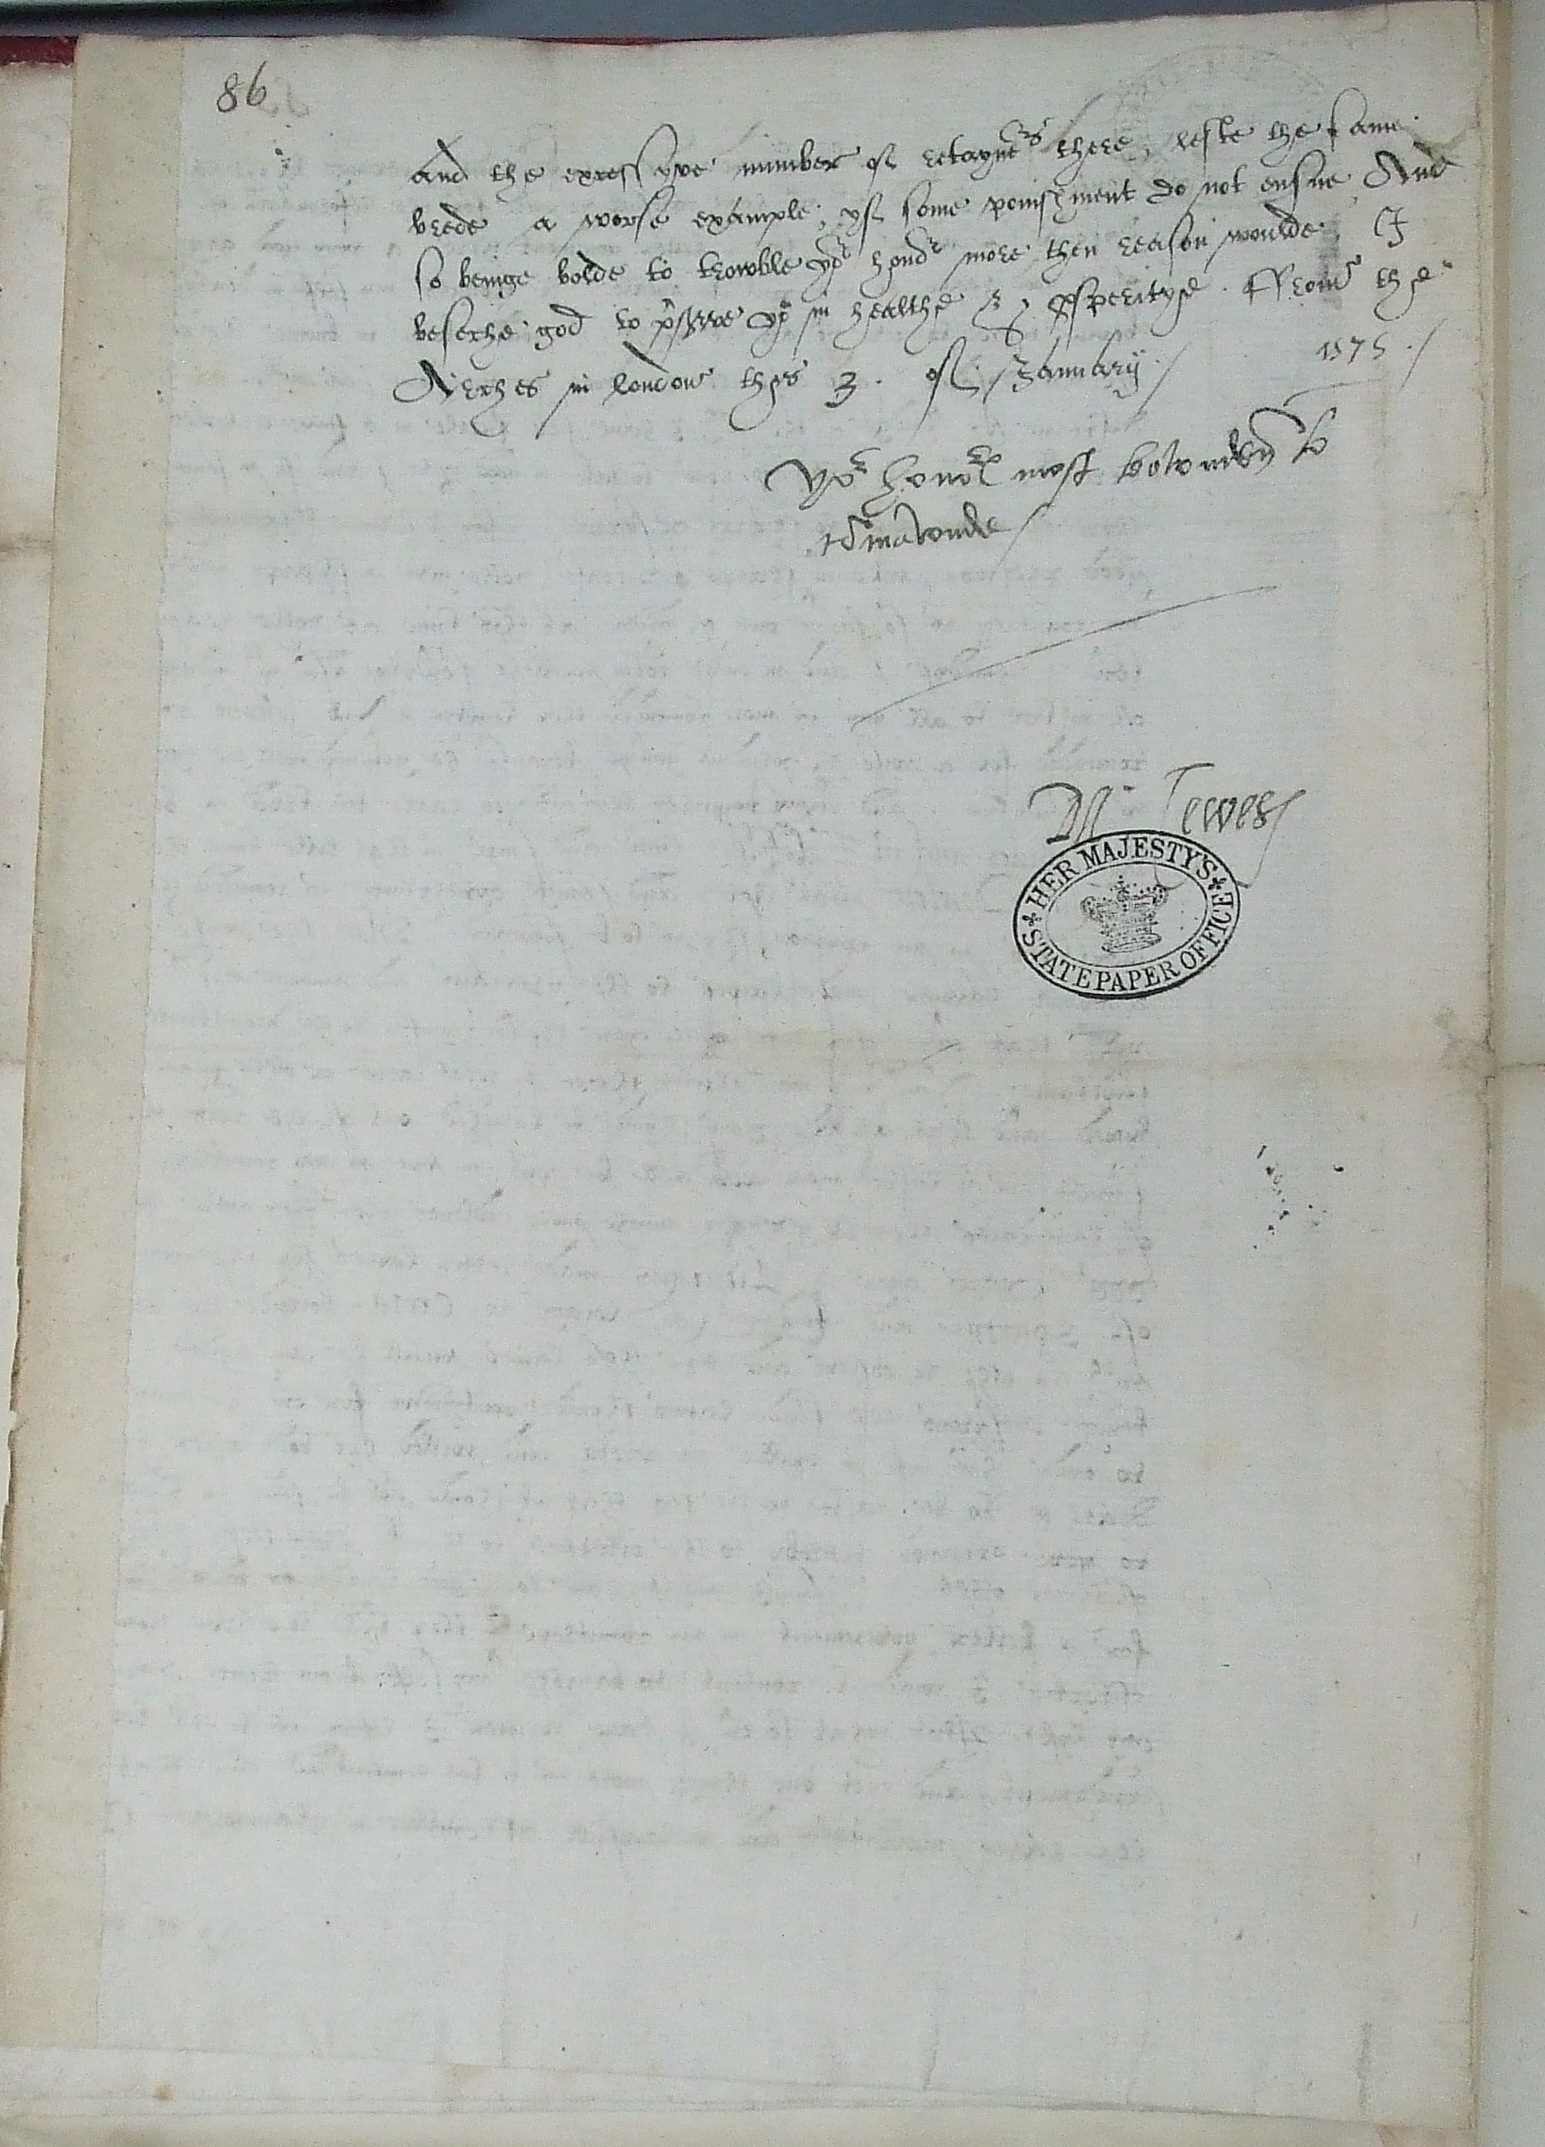 86
And the excessyve number of retayners there, leste the same
brede a worse example, yf some ponishment do not ensue, And
so beinge bolde to trowble yor honor more then reason woulde, I
beseche god to preserve yow in healthe & prosperitye. ffrom the
Arches in london this 3. of January./ 1575./
Yor honors most bownden to
comaunde
Mr Lewes
HER MAJESTY'S STATE PAPER OFFICE